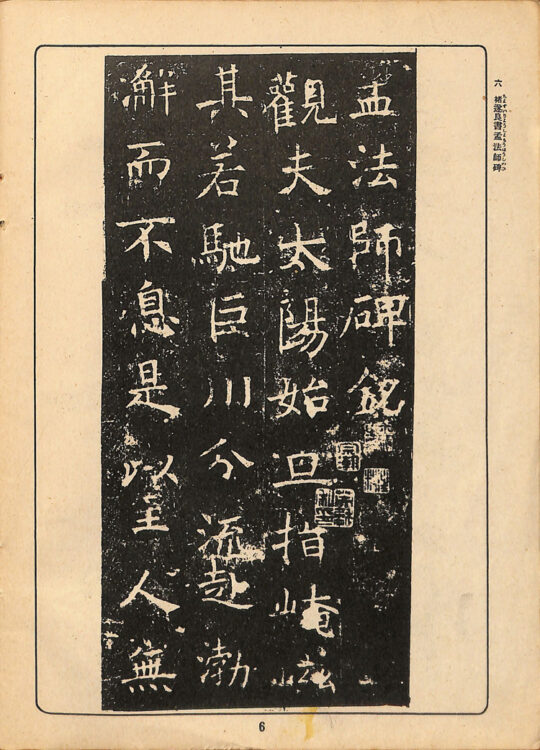 六 褚遂良書孟法師碑
孟法師碑銘
觀夫太陽始旦指崦嵫
其若馳巨川分流赴渤
澥而不息是以至人無
6